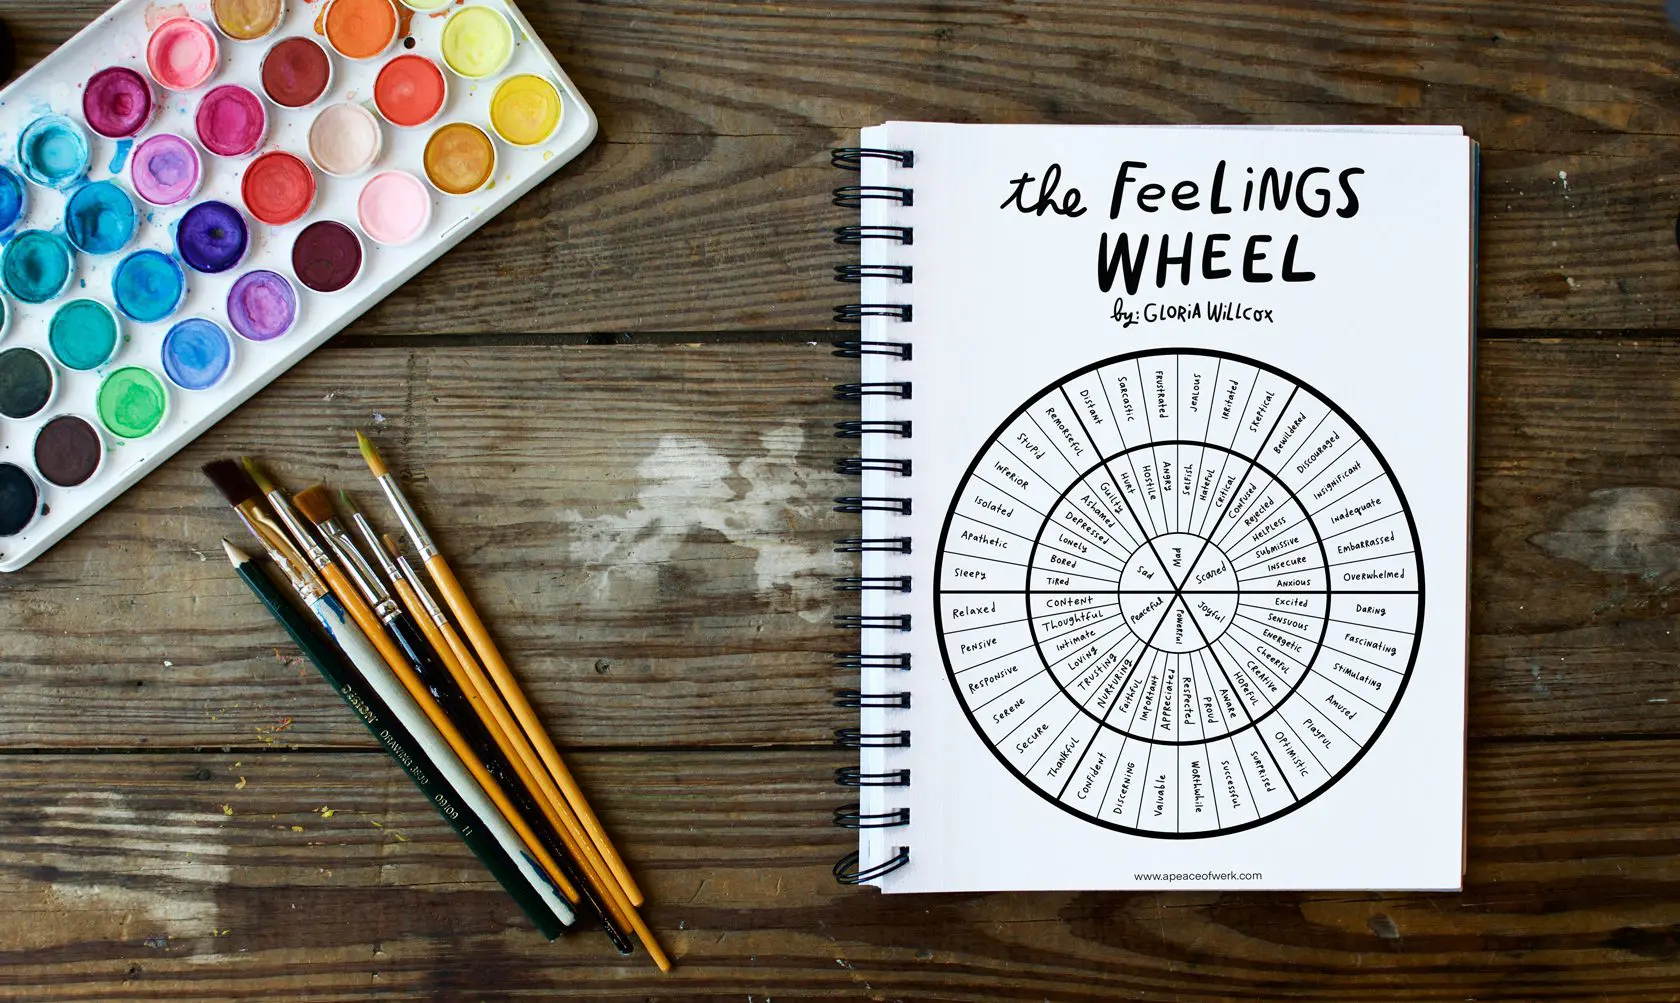 the FeeLiNGS
WHEEL
by: GLORiA WiLLcox
Mad
Scared
Joyful
Powerful
Peaceful
Sad
Hurt
Hostile
Angry
Selfish
Hateful
Critical
Confused
Rejected
Helpless
Submissive
Insecure
Anxious
Excited
Sensuous
Energetic
Cheerful
Creative
Hopeful
Aware
Proud
Respected
Appreciated
Important
Faithful
Nurturing
Trusting
Loving
Intimate
Thoughtful
Content
Tired
Bored
Lonely
Depressed
Ashamed
Guilty
Distant
Sarcastic
Frustrated
Jealous
Irritated
Skeptical
Bewildered
Discouraged
Insignificant
Inadequate
Embarrassed
Overwhelmed
Daring
Fascinating
Stimulating
Amused
Playful
Optimistic
Surprised
Successful
Worthwhile
Valuable
Discerning
Confident
Thankful
Secure
Serene
Responsive
Pensive
Relaxed
Sleepy
Apathetic
Isolated
Inferior
Stupid
Remorseful
www.apeaceofwerk.com
DESIGN
DRAWING 3800